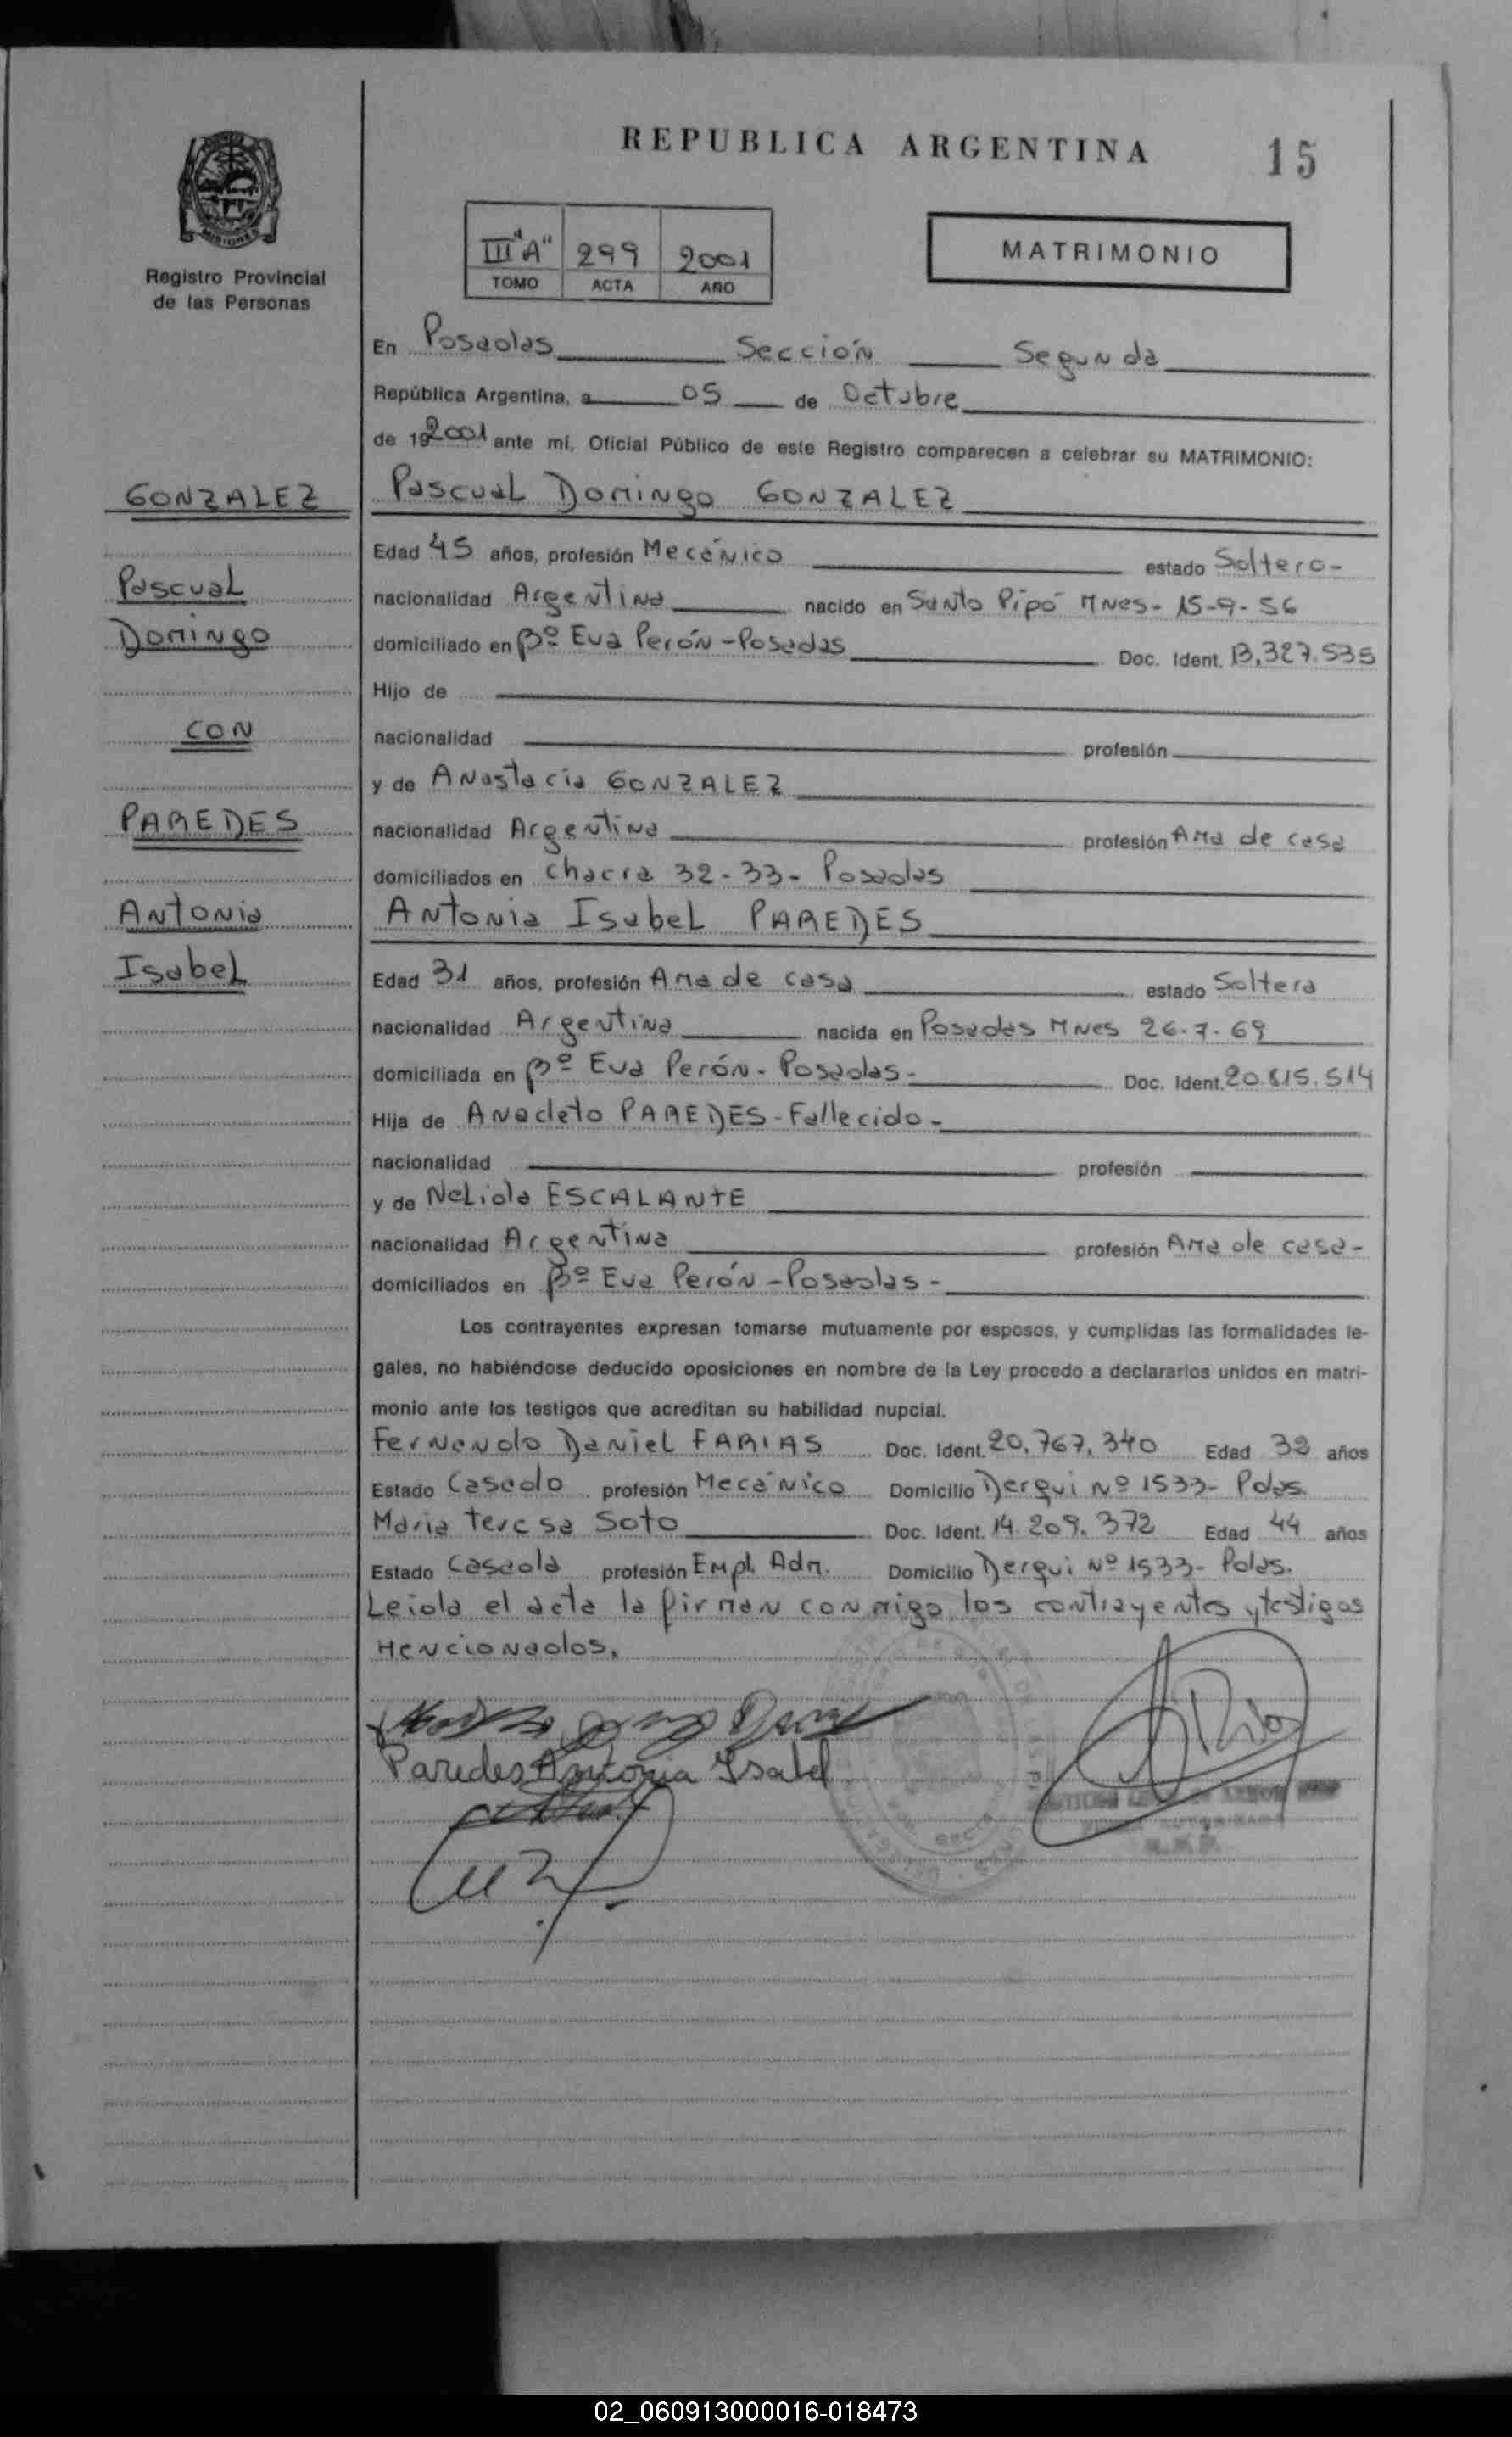 REPUBLICA ARGENTINA
15
MISIONES
Registro Provincial
de las Personas
III "A" 299 2001
TOMO ACTA AÑO
MATRIMONIO
En Posadas Sección Segunda
República Argentina, a 05 de Octubre
de 19 2001 ante mí, Oficial Público de este Registro comparecen a celebrar su MATRIMONIO:
GONZALEZ
Pascual
Domingo
CON
PAREDES
Antonia
Isabel
Pascual Domingo GONZALEZ
Edad 45 años, profesión Mecánico estado Soltero-
nacionalidad Argentina nacido en Santo Pipó Mnes- 15-9-56
domiciliado en Bº Eva Perón-Posadas Doc. Ident. 13,327.535
Hijo de
nacionalidad profesión
y de Anastacia GONZALEZ
nacionalidad Argentina profesión Ama de casa
domiciliados en Chacra 32-33- Posadas
Antonia Isabel PAREDES
Edad 31 años, profesión Ama de casa estado Soltera
nacionalidad Argentina nacida en Posadas Mnes 26-7-69
domiciliada en Bº Eva Perón-Posadas- Doc. Ident. 20.615.514
Hija de Anacleto PAREDES-Fallecido-
nacionalidad profesión
y de Nelida ESCALANTE
nacionalidad Argentina profesión Ama de casa-
domiciliados en Bº Eva Perón-Posadas-
Los contrayentes expresan tomarse mutuamente por esposos, y cumplidas las formalidades le-
gales, no habiéndose deducido oposiciones en nombre de la Ley procedo a declararlos unidos en matri-
monio ante los testigos que acreditan su habilidad nupcial.
Fernando Daniel FARIAS Doc. Ident. 20.767.340 Edad 32 años
Estado Casado profesión Mecánico Domicilio Derqui Nº 1533- Pdas.
Maria Teresa Soto Doc. Ident. 14.209.372 Edad 44 años
Estado Casada profesión Empl. Adm. Domicilio Derqui Nº 1533- Pdas.
Leida el acta la firman conmigo los contrayentes y testigos
Mencionados.
Paredes Antonia Isabel
02_060913000016-018473